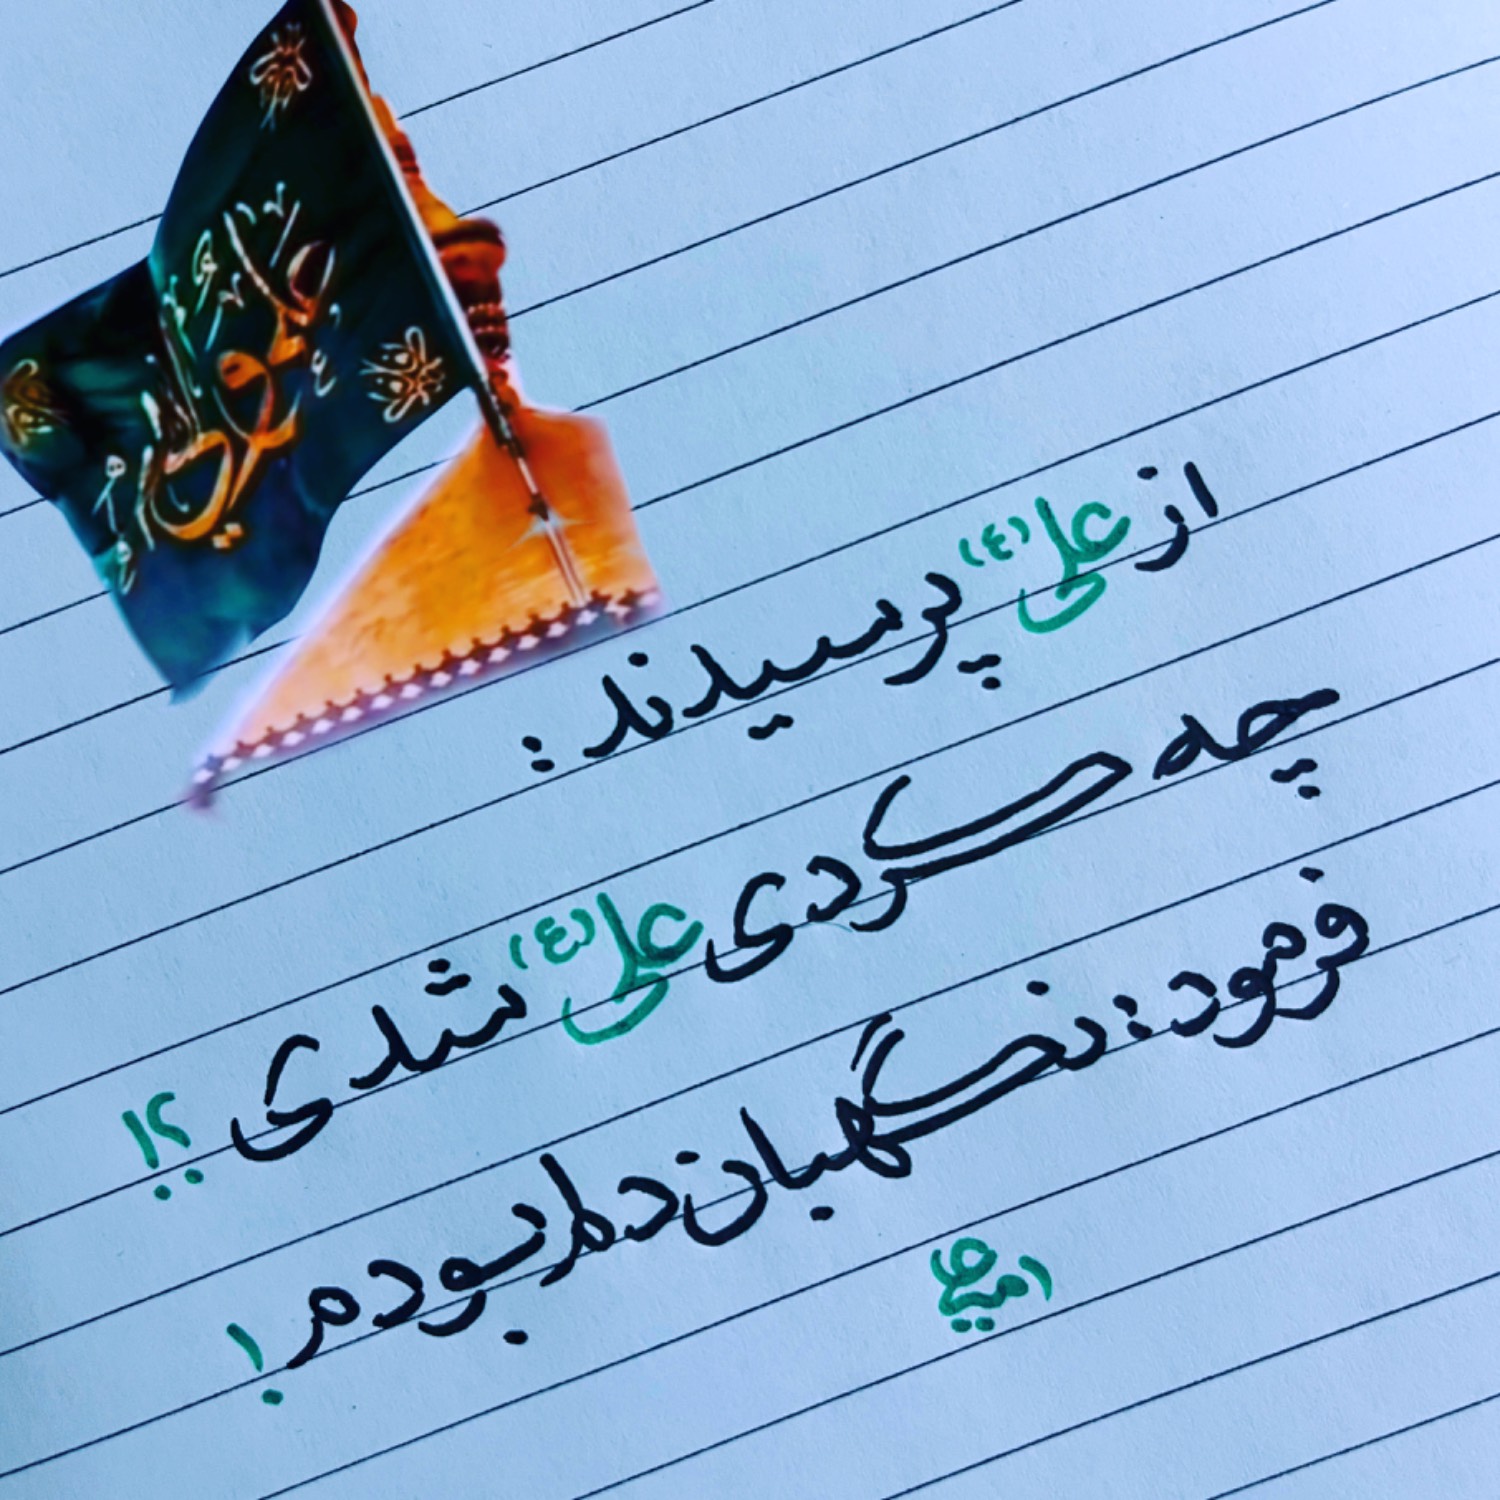 از علی (ع) پرسیدند :
چه کردی علی (ع) شدی ؟!
فرمود : نگهبان دلم بودم !